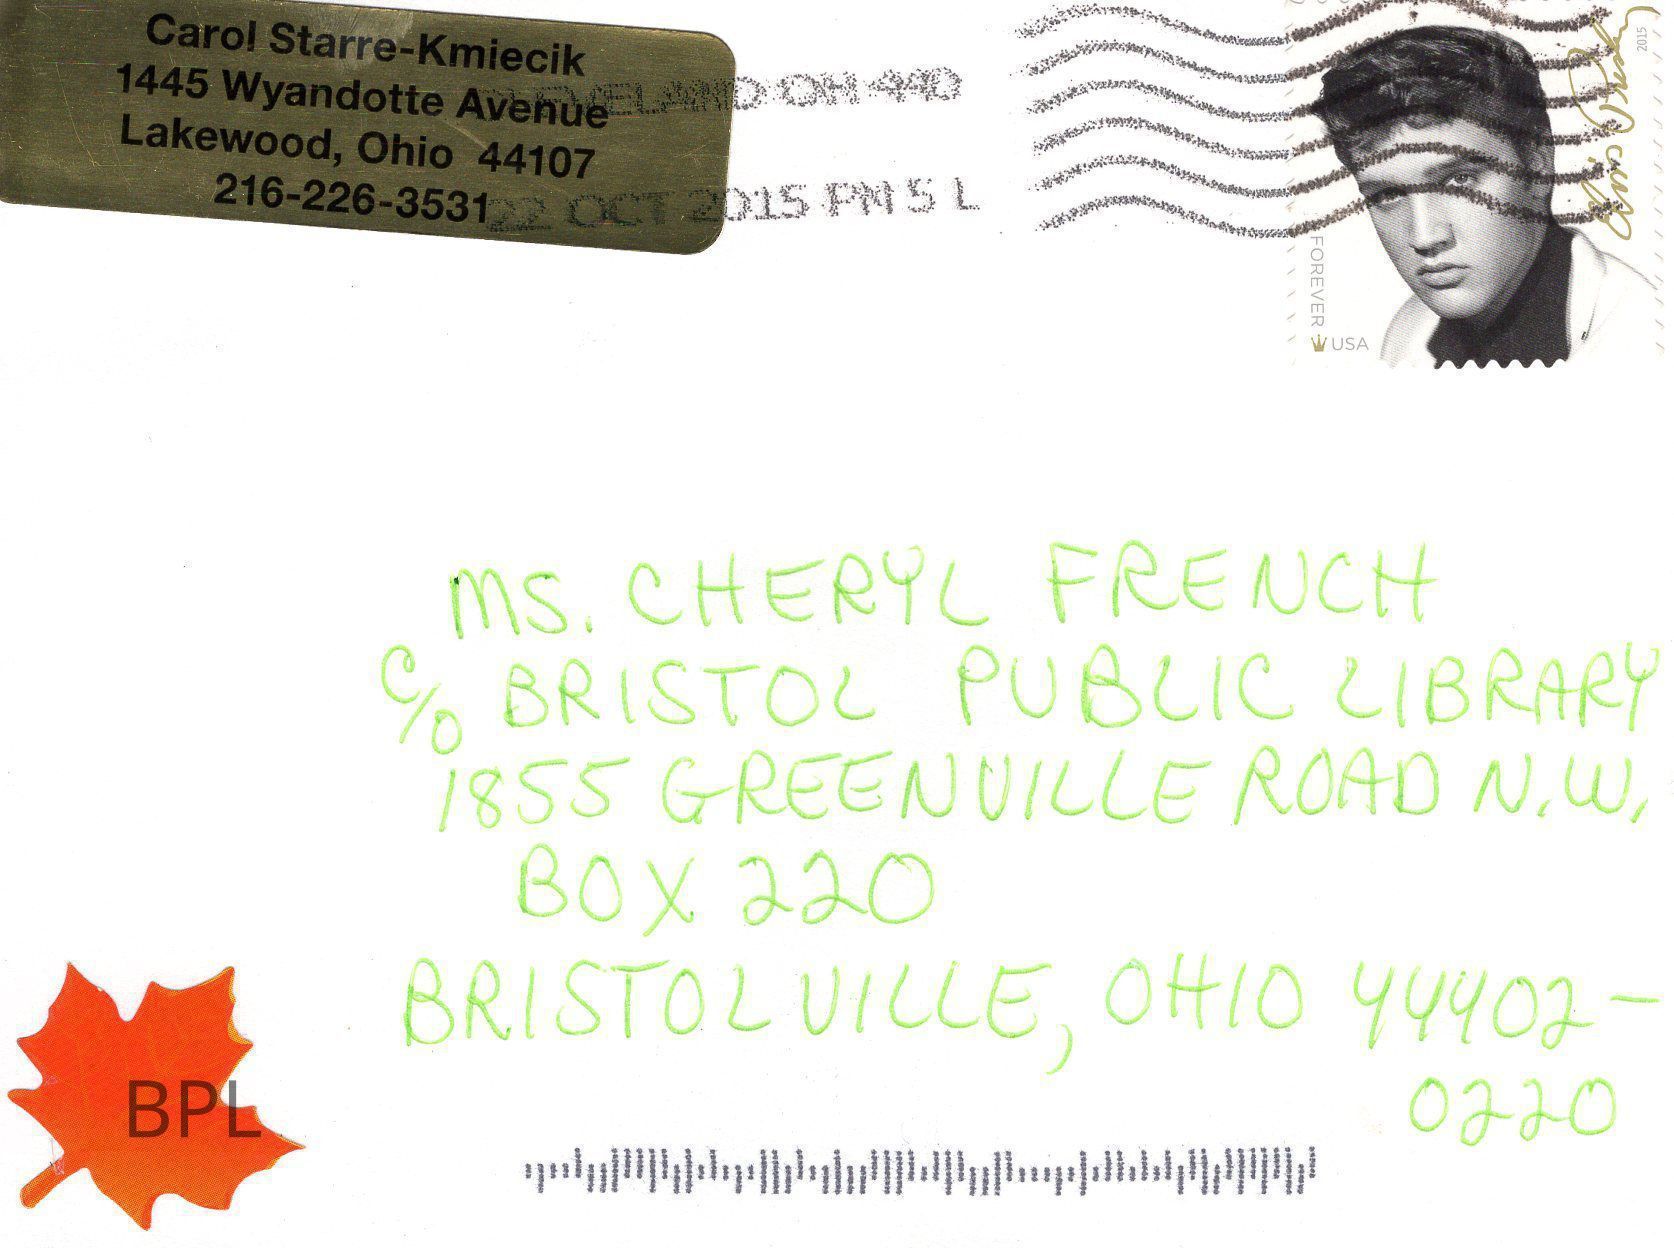 Carol Starre-Kmiecik
1445 Wyandotte Avenue
Lakewood, Ohio 44107
216-226-3531
CLEVELAND OH 440
22 OCT 2015 PM 5 L
Elvis Presley
2015
FOREVER
USA
MS. CHERYL FRENCH
C/O BRISTOL PUBLIC LIBRARY
1855 GREENVILLE ROAD N.W.
BOX 220
BRISTOLVILLE, OHIO 44402-
0220
BPL